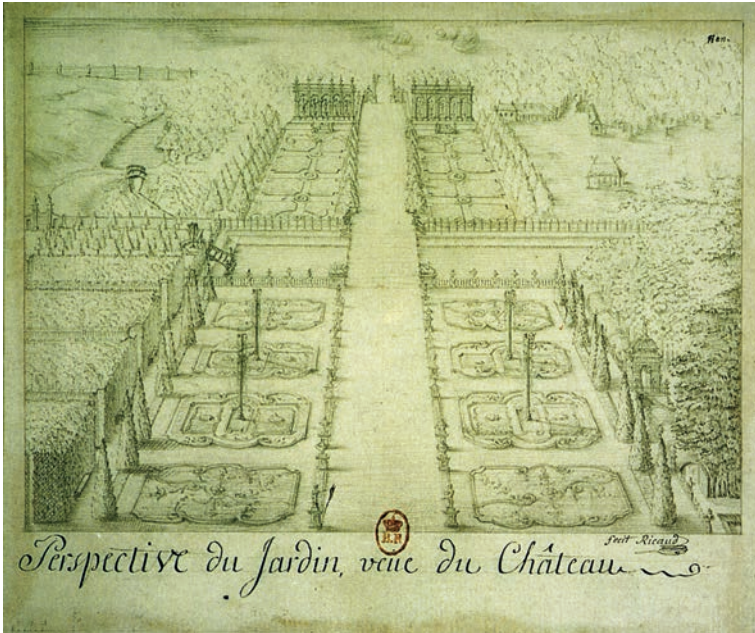 fecit Ricaud
B.R
Perspective du Jardin, veue du Château